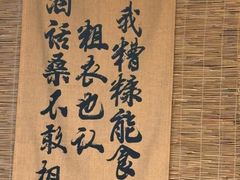 我糟糠能食
粗衣也认
话桑不敢相